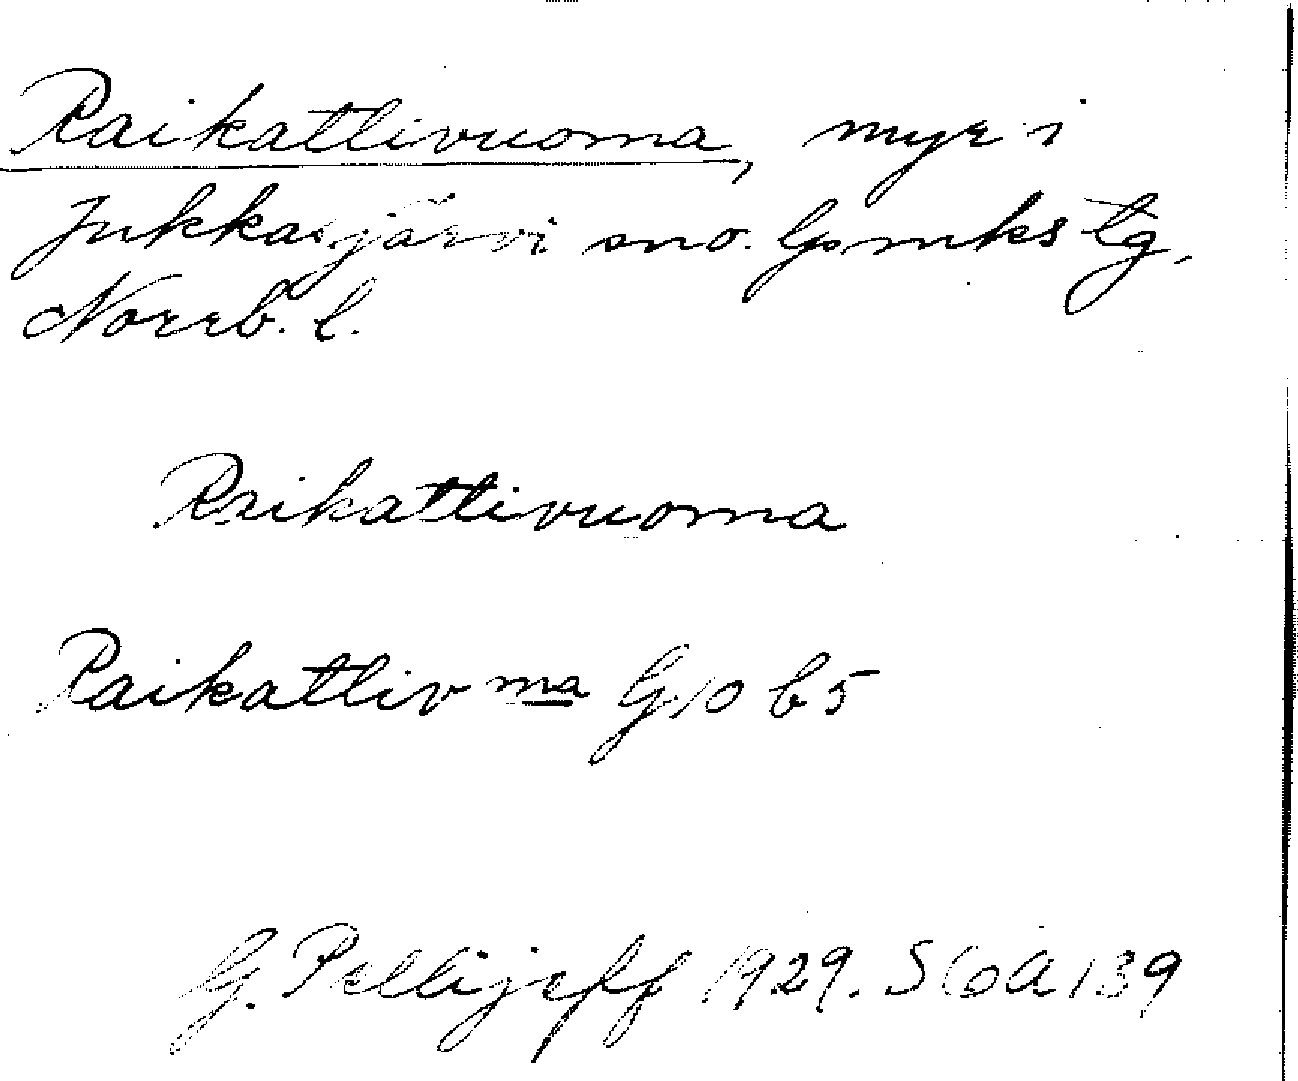 Raikattivuoma, myr i
Jukkasjärvi sno. Lpmks tg,
Norrb. l.
Raikattivuoma
Raikattiv ma G10 b5
G. Pellijeff 1929. SOA 139